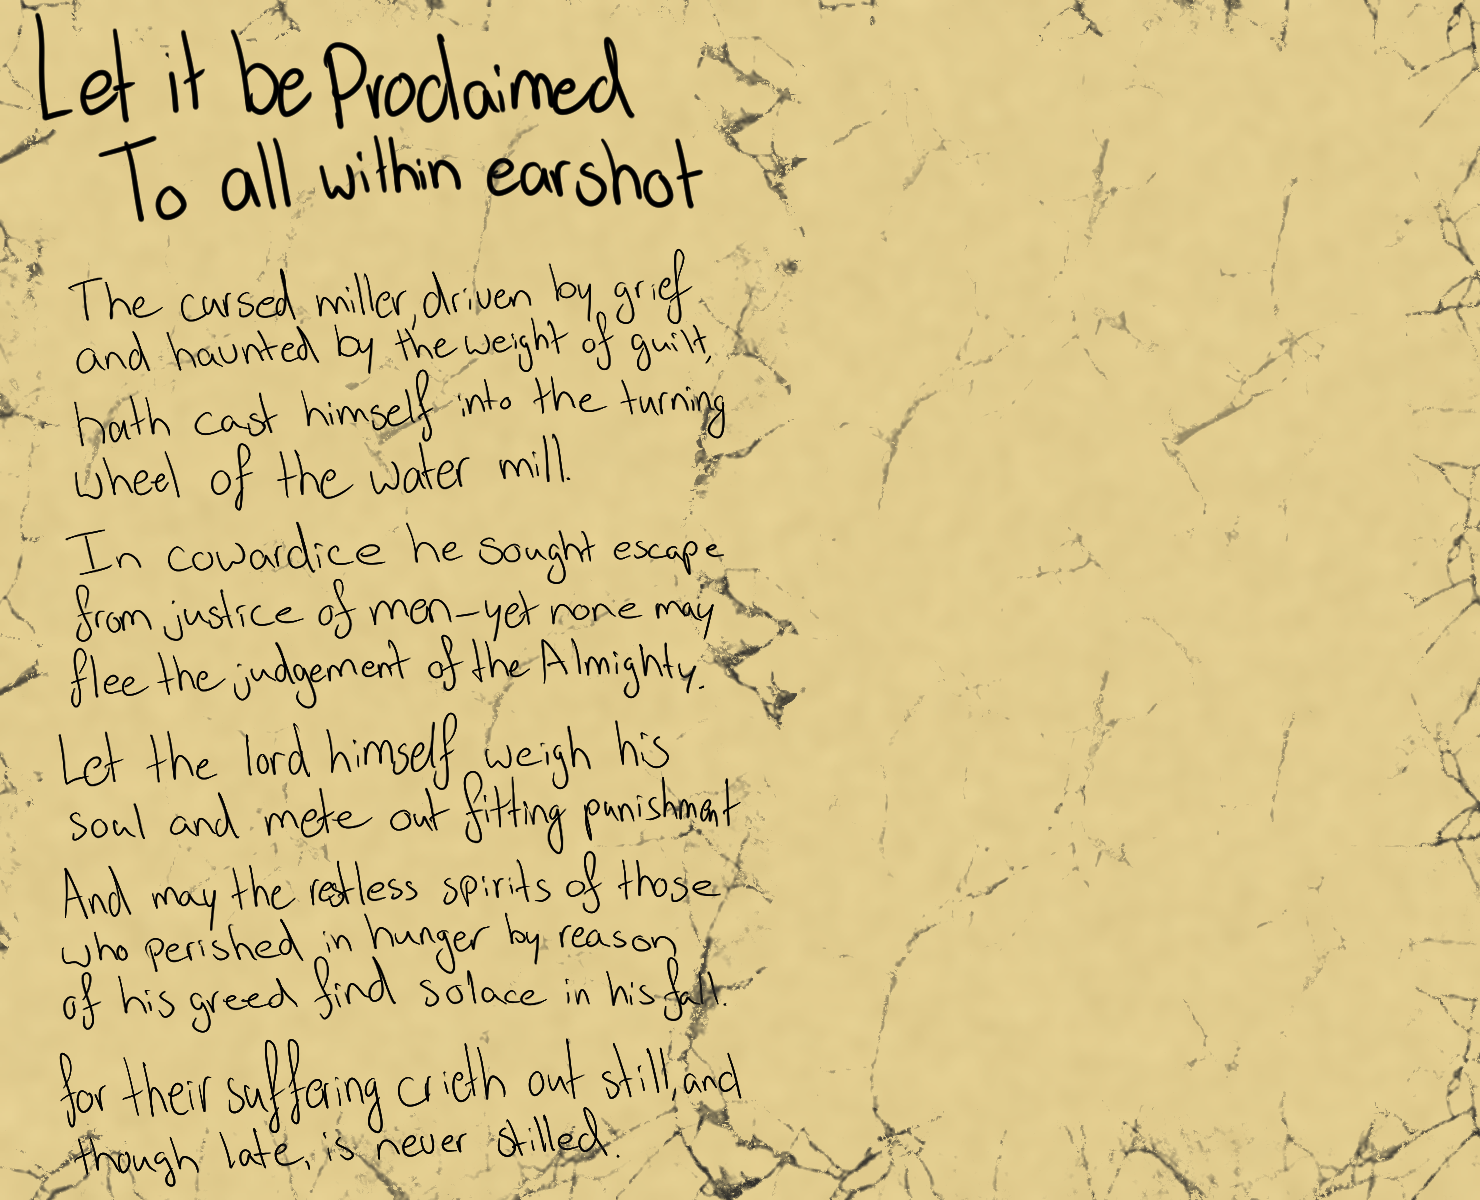 Let it be Proclaimed
To all within earshot
The cursed miller, driven by grief
and haunted by the weight of guilt,
hath cast himself into the turning
wheel of the water mill.
In cowardice he sought escape
from justice of men-yet none may
flee the judgement of the Almighty.
Let the lord himself weigh his
soul and mete out fitting punishment
And may the restless spirits of those
who perished in hunger by reason
of his greed find solace in his fall.
for their suffering crieth out still, and
though late, is never stilled.